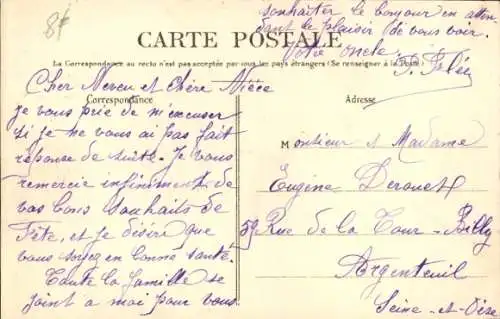 8f
souhaiter le bonjour en atten
dant le plaisir de vous voir.
Votre oncle.
CARTE POSTALE
La Correspondance au recto n'est pas acceptée par tous les pays étrangers (Se renseigner à la Poste)
Correspondance
Adresse
Cher Neveu et Chère Nièce
je vous prie de m'excuser
si je ne vous ai pas fait
réponse de suite. Je vous
remercie infiniment de
vos bons souhaits de
Fête, et je désire que
vous soyez en bonne santé.
Toute la famille se
joint a moi pour vous
Monsieur et Madame
Eugène Derouet
59 Rue de la Tour-Billy
Argenteuil
Seine-et-Oise